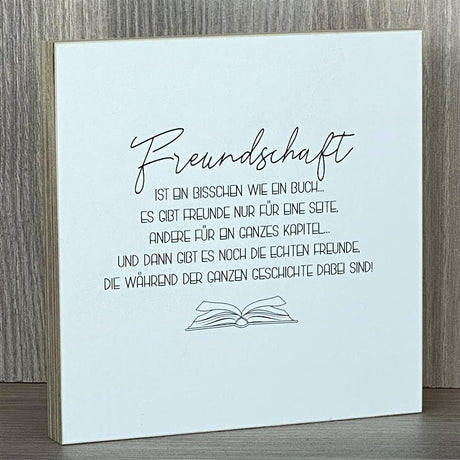 Freundschaft
IST EIN BISSCHEN WIE EIN BUCH...
ES GIBT FREUNDE NUR FÜR EINE SEITE,
ANDERE FÜR EIN GANZES KAPITEL...
UND DANN GIBT ES NOCH DIE ECHTEN FREUNDE,
DIE WÄHREND DER GANZEN GESCHICHTE DABEI SIND!